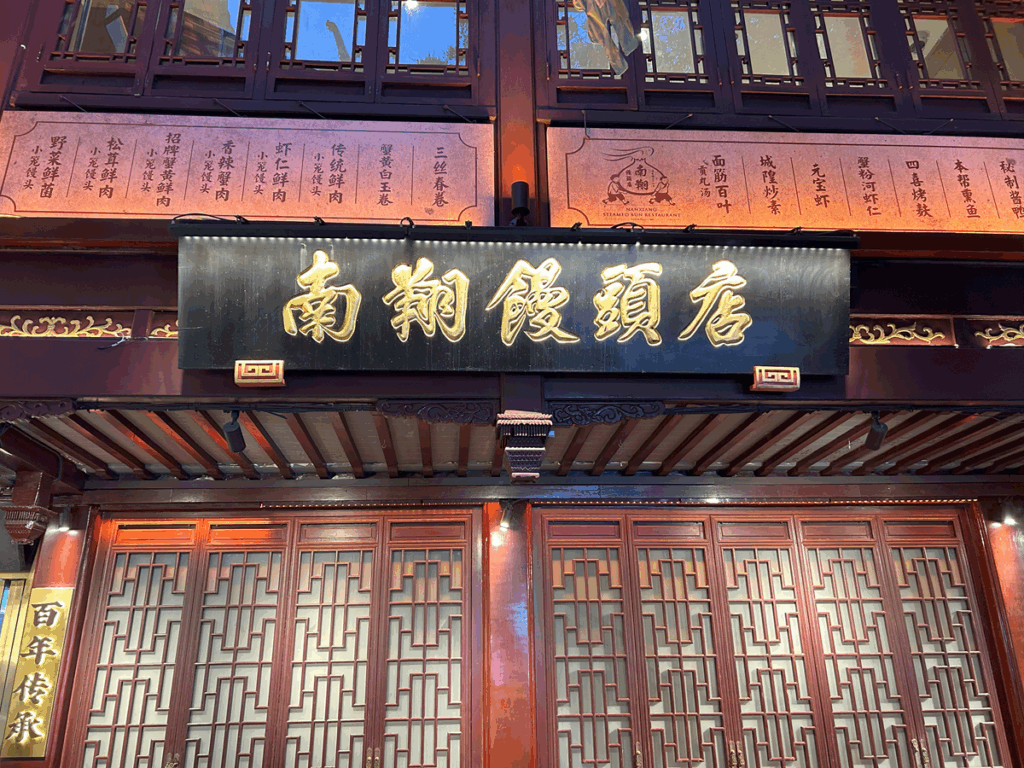 三丝春卷
蟹黄白玉卷
传统鲜肉
小笼馒头
虾仁鲜肉
小笼馒头
香辣蟹肉
小笼馒头
招牌蟹黄鲜肉
小笼馒头
松茸鲜肉
小笼馒头
野菜鲜菌
小笼馒头
秘制酱鸭
本帮熏鱼
四喜烤麸
蟹粉河虾仁
元宝虾
城隍炒素
面筋百叶
南翔
馒头店
NANXIANG
STEAMED BUN RESTAURANT
南翔饅頭店
百年传承